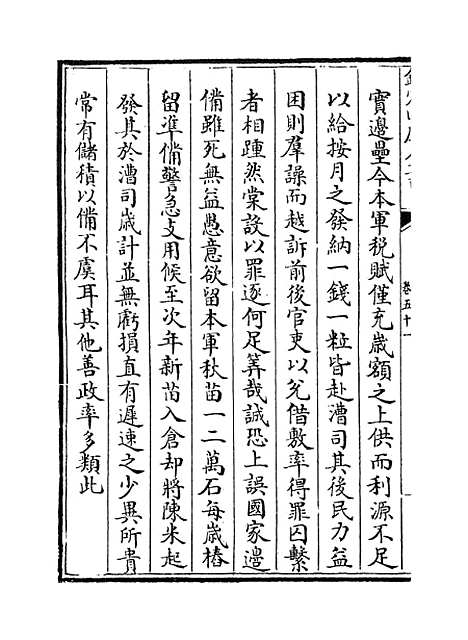 實邊壘今本軍税賦僅充歲額之上供而利源不足
以給按月之發納一錢一粒皆赴漕司其後民力益
困則羣譟而越訴前後官吏以兊借敷率得罪囚繫
者相踵然棠設以罪逐何足筭哉誠恐上誤國家邉
備雖死無益愚意欲留本軍秋苗一二萬石每歲樁
留準備警急支用候至次年新苗入倉却將陳米起
發其於漕司歲計並無虧損直有遲速之少異所貴
常有儲積以備不虞耳其他善政率多類此
卷五十一